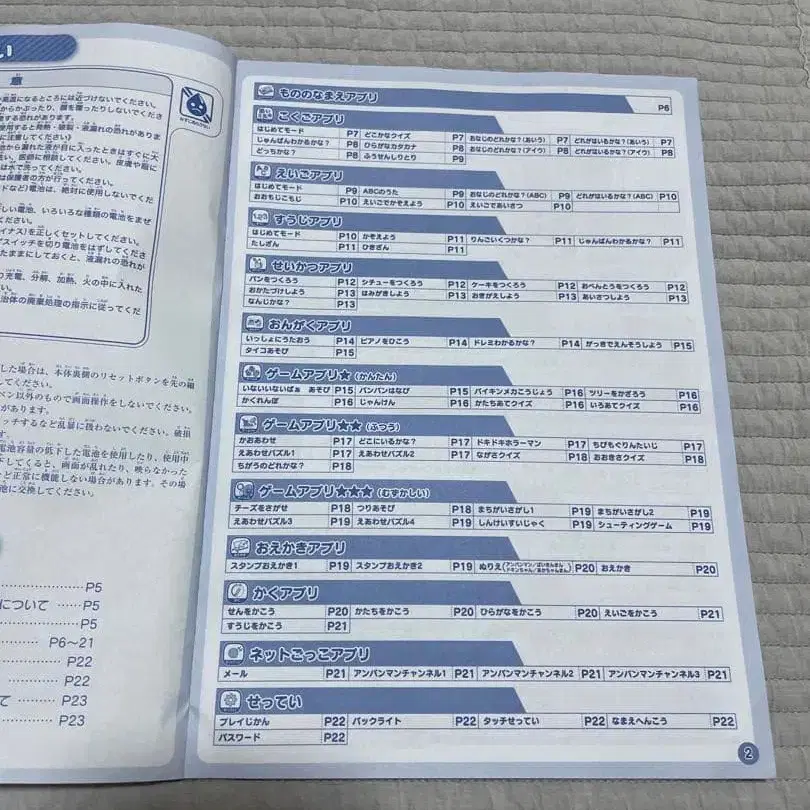 い
意
風呂になるところには近づけないでください。
からかぶったり、顔を覆ったりしないでくださ
する恐れがあります。
使用すると発熱・破裂・液漏れの恐れがありま
に注意してください)
から漏れた液が目に入ったときはすぐに大
い、医師に相談してください。皮膚や服に
は水で洗ってください。
は保護者の方が行ってください。
ドなど)電池は、絶対に使用しないでくだ
しい電池、いろいろな種類の電池をまぜ
てください。
イナス)を正しくセットしてください。
スイッチを切り電池をはずしてくださ
たままにしておくと、液漏れの恐れが
充電、分解、加熱、火の中に入れた
ださい。
治体の廃棄処理の指示に従ってくだ
した場合は、本体裏側のリセットボタンを先の細
してください。
ペン以外のもので画面操作をしないでください。
があります。
タッチするなど乱暴に扱わないでください。破損
す。
電池容量の低下した電池を使用したり、使用中
下してくると、画面が乱れたり、映らなかった
ど正常に機能しない場合があります。その場
池に交換してください。
P5
について P5
P5
P6～21
P22
P22
て P23
P23
もののなまえアプリ
P6
こくごアプリ
はじめてモード P7 どこかなクイズ P7 おなじのどれかな?(あいう) P7 どれがはいるかな?(あいう) P7
じゅんばんわかるかな? P8 ひらがなカタカナ P8 おなじのどれかな?(アイウ) P8 どれがはいるかな?(アイウ) P8
どっちかな? P8 ふうせんしりとり P9
えいごアプリ
はじめてモード P9 ABCのうた P9 おなじのどれかな?(ABC) P9 どれがはいるかな?(ABC) P10
おおもじこもじ P10 えいごでかぞえよう P10 えいごであいさつ P10
すうじアプリ
はじめてモード P10 かぞえよう P11 りんごいくつかな? P11 じゅんばんわかるかな? P11
たしざん P11 ひきざん P11
せいかつアプリ
パンをつくろう P12 シチューをつくろう P12 ケーキをつくろう P12 おべんとうをつくろう P12
おかたづけしよう P13 はみがきしよう P13 おきがえしよう P13 あいさつしよう P13
なんじかな? P13
おんがくアプリ
いっしょにうたおう P14 ピアノをひこう P14 ドレミわかるかな? P14 がっきでえんそうしよう P15
タイコあそび P15
ゲームアプリ★(かんたん)
いないいないばぁ あそび P15 バンバンはなび P15 バイキンメカこうじょう P16 ツリーをかざろう P16
かくれんぼ P16 じゃんけん P16 かたちあてクイズ P16 いろあてクイズ P16
ゲームアプリ★★(ふつう)
かおあわせ P17 どこにいるかな? P17 ドキドキホラーマン P17 ちびもぐりんたいじ P17
えあわせパズル1 P17 えあわせパズル2 P17 ながさクイズ P18 おおきさクイズ P18
ちがうのどれかな? P18
ゲームアプリ★★★(むずかしい)
チーズをさがせ P18 つりあそび P18 まちがいさがし1 P19 まちがいさがし2 P19
えあわせパズル3 P19 えあわせパズル4 P19 しんけいすいじゃく P19 シューティングゲーム P19
おえかきアプリ
スタンプおえかき1 P19 スタンプおえかき2 P19 ぬりえ(アンパンマン/ばいきんまん ドキンちゃん/あかちゃんまん) P20 おえかき P20
かくアプリ
せんをかこう P20 かたちをかこう P20 ひらがなをかこう P20 えいごをかこう P21
すうじをかこう P21
ネットごっこアプリ
メール P21 アンパンマンチャンネル1 P21 アンパンマンチャンネル2 P21 アンパンマンチャンネル3 P21
せってい
プレイじかん P22 バックライト P22 タッチせってい P22 なまえへんこう P22
パスワード P22
2